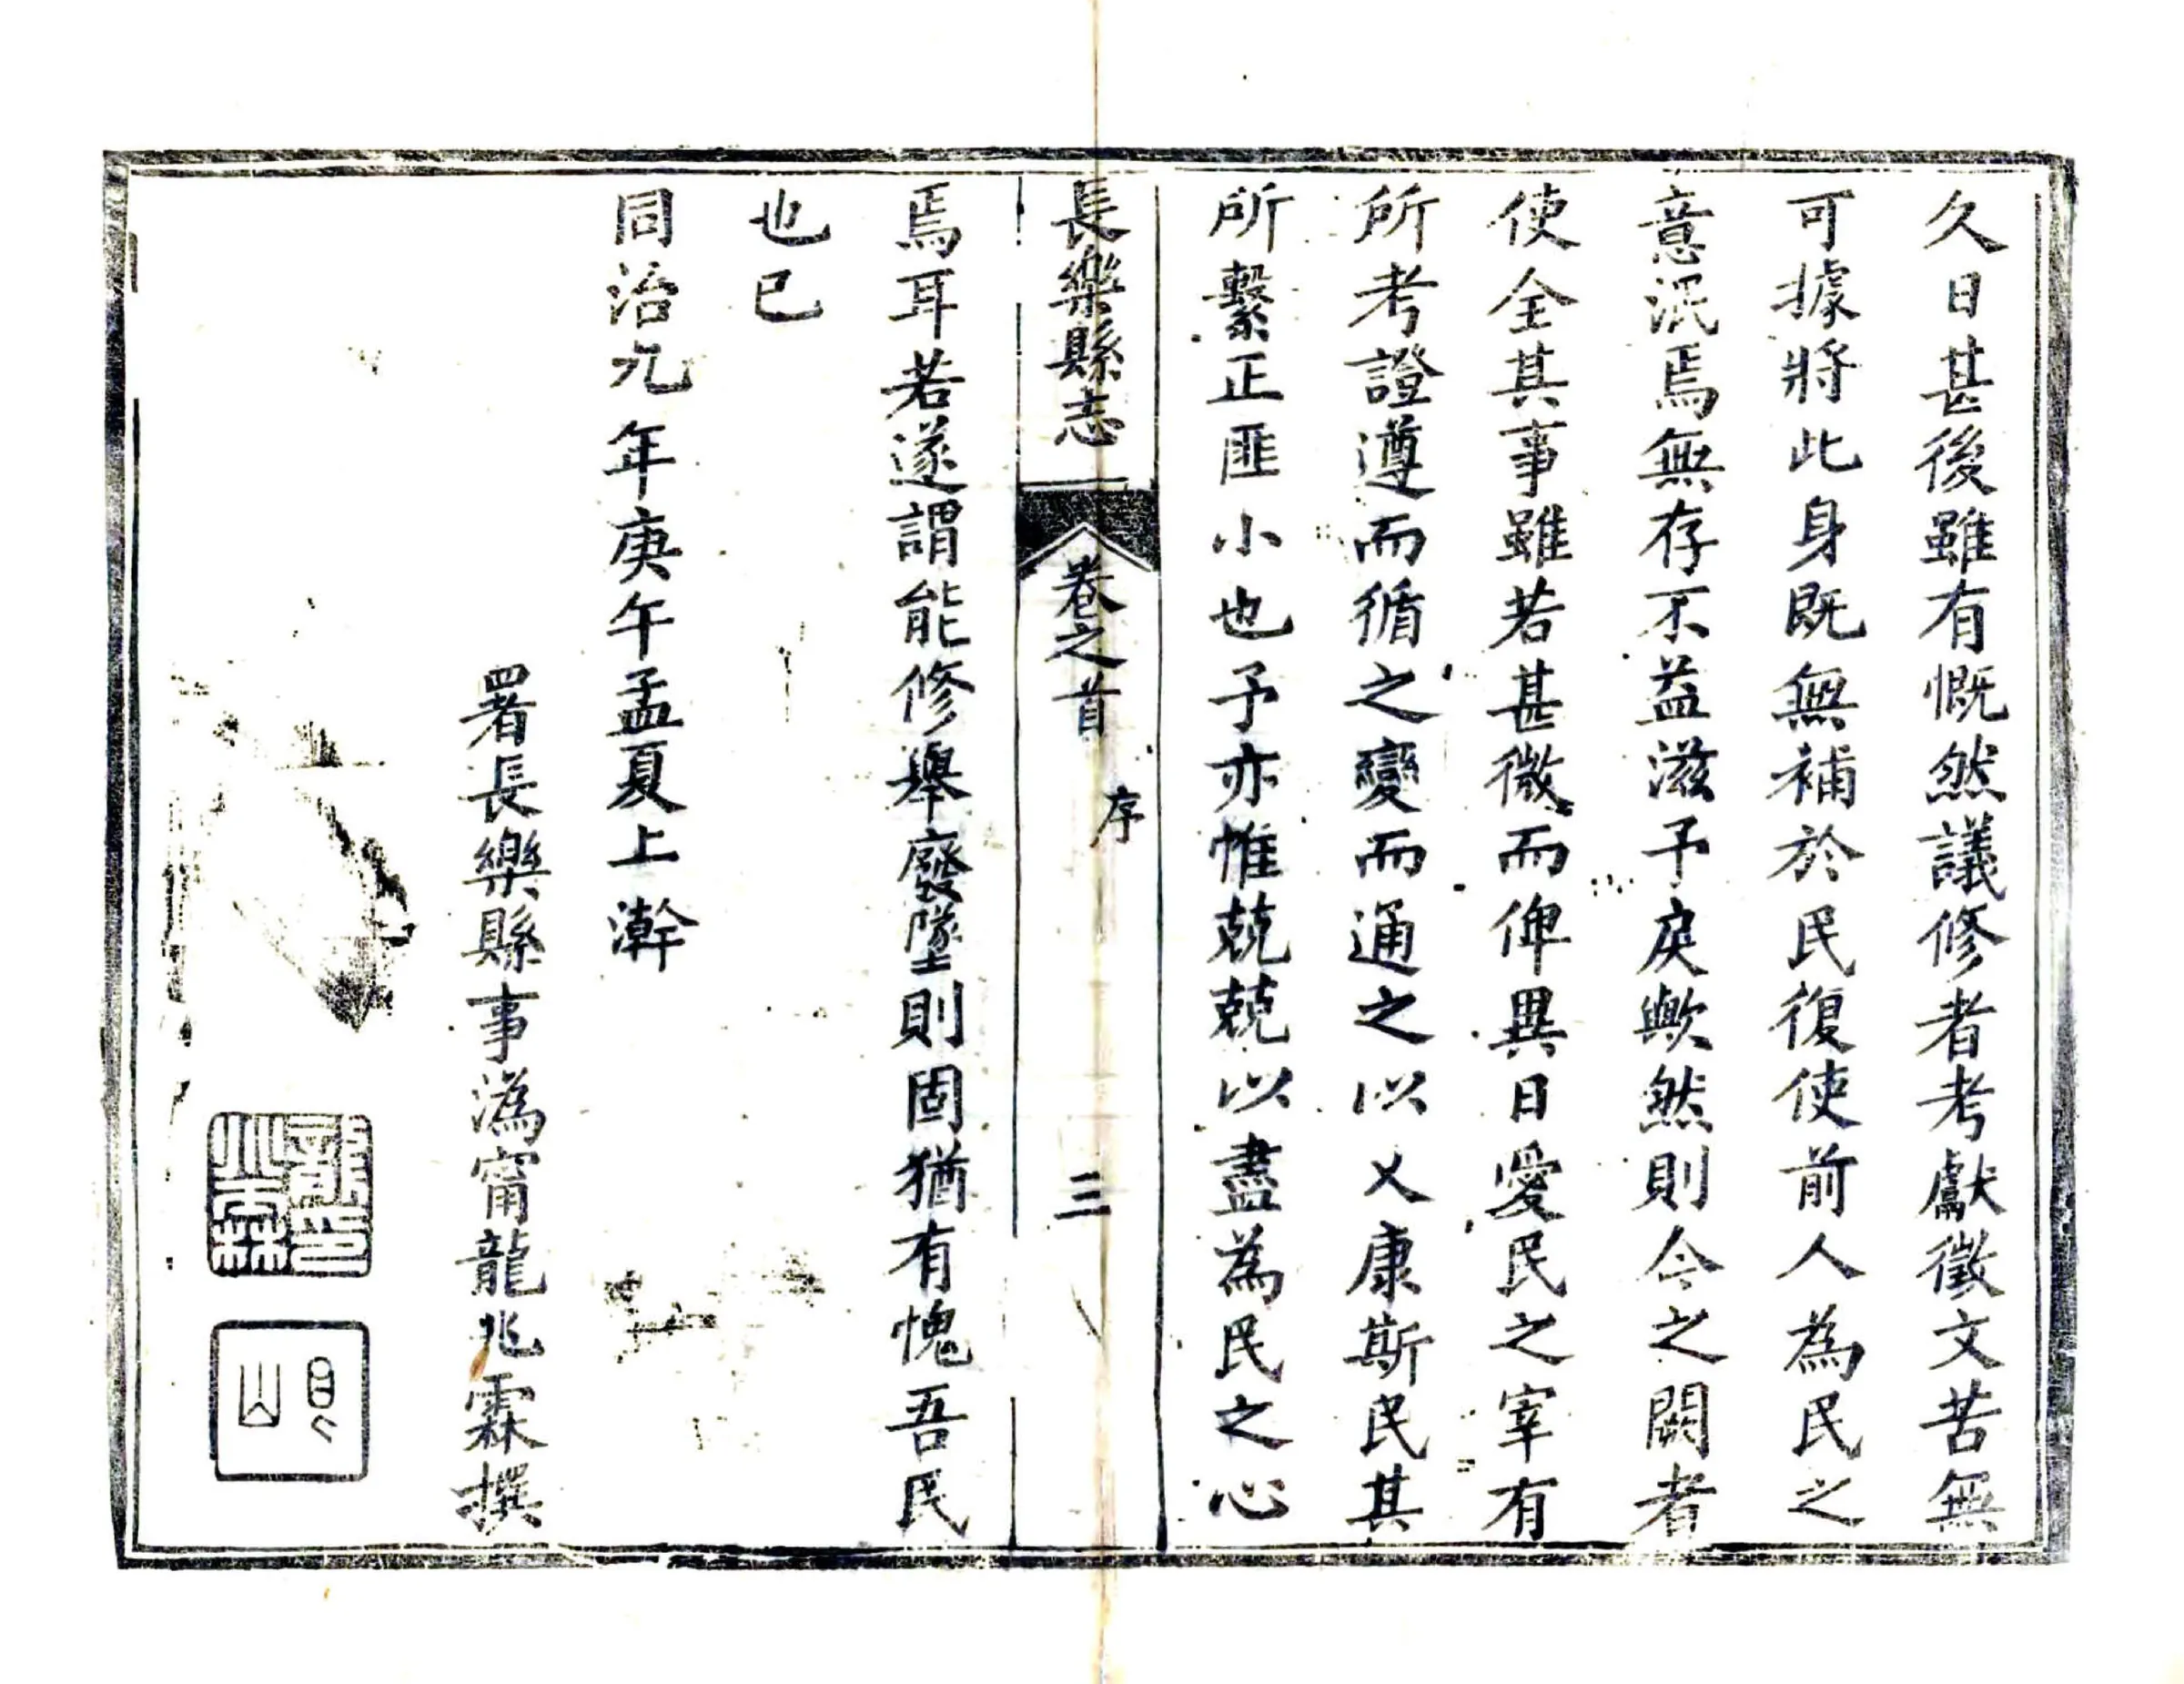 久日甚後雖有慨然議修者考獻徵文苦無
可據將此身既無補於民復使前人為民之
意泯焉無存不益滋予戾歟然則今之闕者
使全其事雖若甚微而俾異日愛民之宰有
所考證遵而循之變而通之以乂康斯民其
所繫正匪小也予亦惟兢兢以盡為民之心
長樂縣志
卷之首
序
三
焉耳若遂謂能修舉廢墜則固猶有愧吾民
也已
同治九年庚午孟夏上澣
署長樂縣事溈甯龍兆霖撰
龍印兆霖
峴山